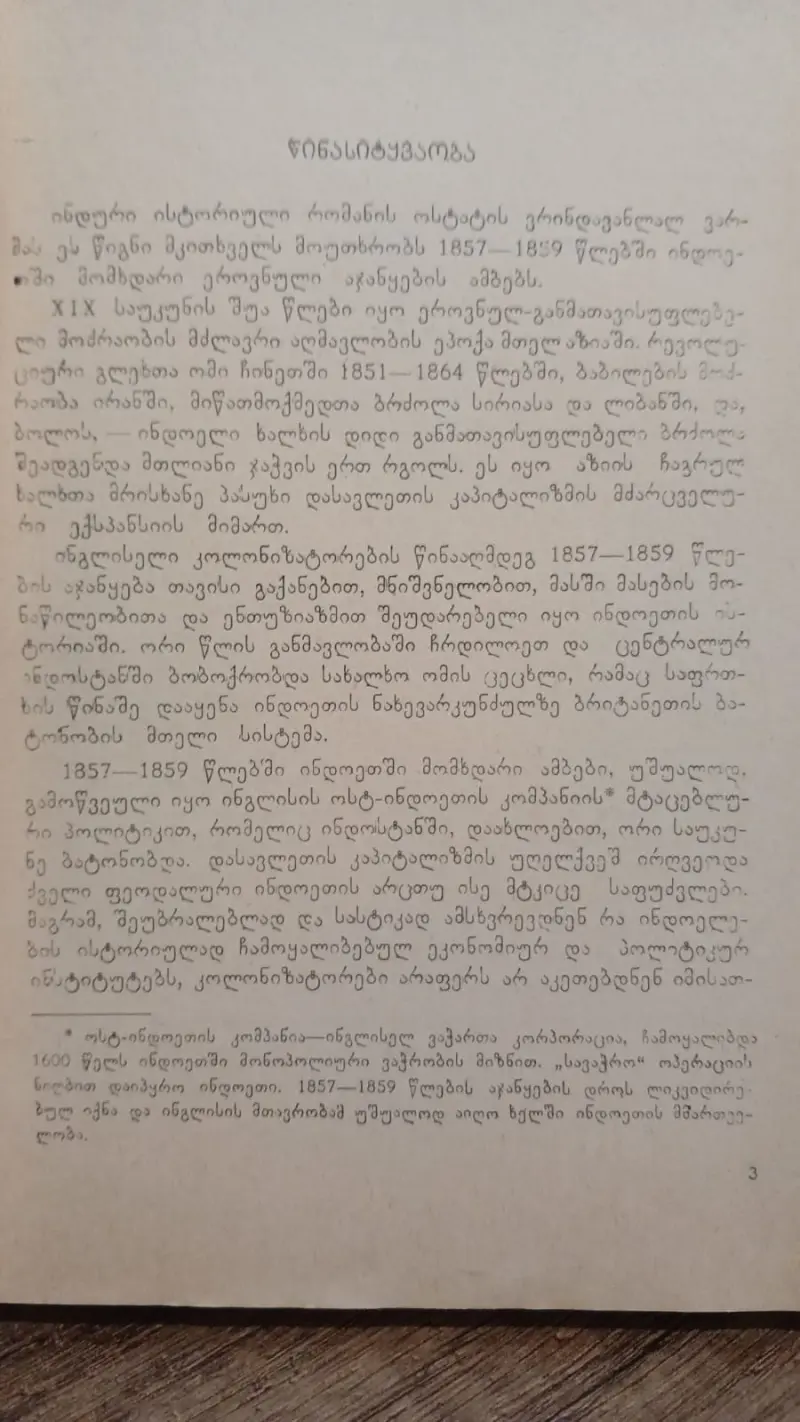 წინასიტყვაობა
ინდური ისტორიული რომანის ოსტატის ვრინდავანლალ ვარ-
მას ეს წიგნი მკითხველს მოუთხრობს 1857—1859 წლებში ინდოე-
თში მომხდარი ეროვნული აჯანყების ამბებს.
XIX საუკუნის შუა წლები იყო ეროვნულ-განმათავისუფლებე-
ლი მოძრაობის მძლავრი აღმავლობის ეპოქა მთელ აზიაში. რევოლუ-
ციური გლეხთა ომი ჩინეთში 1851—1864 წლებში, ბაბილების მოძ-
რაობა ირანში, მიწათმოქმედთა ბრძოლა სირიასა და ლიბანში, და,
ბოლოს, — ინდოელი ხალხის დიდი განმათავისუფლებელი ბრძოლა
შეადგენდა მთლიანი ჯაჭვის ერთ რგოლს. ეს იყო აზიის ჩაგრულ
ხალხთა მრისხანე პასუხი დასავლეთის კაპიტალიზმის მძარცველუ-
რი ექსპანსიის მიმართ.
ინგლისელი კოლონიზატორების წინააღმდეგ 1857—1859 წლე-
ბის აჯანყება თავისი გაქანებით, მნიშვნელობით, მასში მასების მო-
ნაწილეობითა და ენთუზიაზმით შეუდარებელი იყო ინდოეთის ის-
ტორიაში. ორი წლის განმავლობაში ჩრდილოეთ და ცენტრალურ
ინდოსტანში ბობოქრობდა სახალხო ომის ცეცხლი, რამაც საფრთ-
ხის წინაშე დააყენა ინდოეთის ნახევარკუნძულზე ბრიტანეთის ბა-
ტონობის მთელი სისტემა.
1857—1859 წლებში ინდოეთში მომხდარი ამბები, უშუალოდ,
გამოწვეული იყო ინგლისის ოსტ-ინდოეთის კომპანიის* მტაცებლუ-
რი პოლიტიკით, რომელიც ინდოსტანში, დაახლოებით, ორი საუკუ-
ნე ბატონობდა. დასავლეთის კაპიტალიზმის უღელქვეშ ირღვეოდა
ძველი ფეოდალური ინდოეთის არცთუ ისე მტკიცე საფუძვლები.
მაგრამ, შეუბრალებლად და სასტიკად ამსხვრევდნენ რა ინდოელე-
ბის ისტორიულად ჩამოყალიბებულ ეკონომიურ და პოლიტიკურ
ინსტიტუტებს, კოლონიზატორები არაფერს არ აკეთებდნენ იმისათ-
* ოსტ-ინდოეთის კომპანია—ინგლისელ ვაჭართა კორპორაცია, ჩამოყალიბდა
1600 წელს ინდოეთში მონოპოლიური ვაჭრობის მიზნით. „სავაჭრო“ ოპერაციის
ნიღბით დაიპყრო ინდოეთი. 1857—1859 წლების აჯანყების დროს ლიკვიდირე-
ბულ იქნა და ინგლისის მთავრობამ უშუალოდ აიღო ხელში ინდოეთის მმართვე-
ლობა.
3